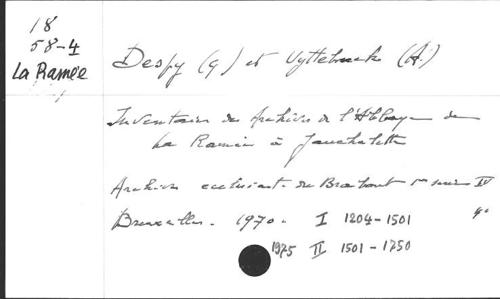 18
58-4
La Ramée
Despy (G) et Uyttebrouck (A.)
Inventaire des Archives de l'Abbaye de
La Ramée à Jauchelette
Archives ecclésiast. du Brabant 1re série IV
Bruxelles. 1970. I 1204-1501 4°
1975 II 1501-1750